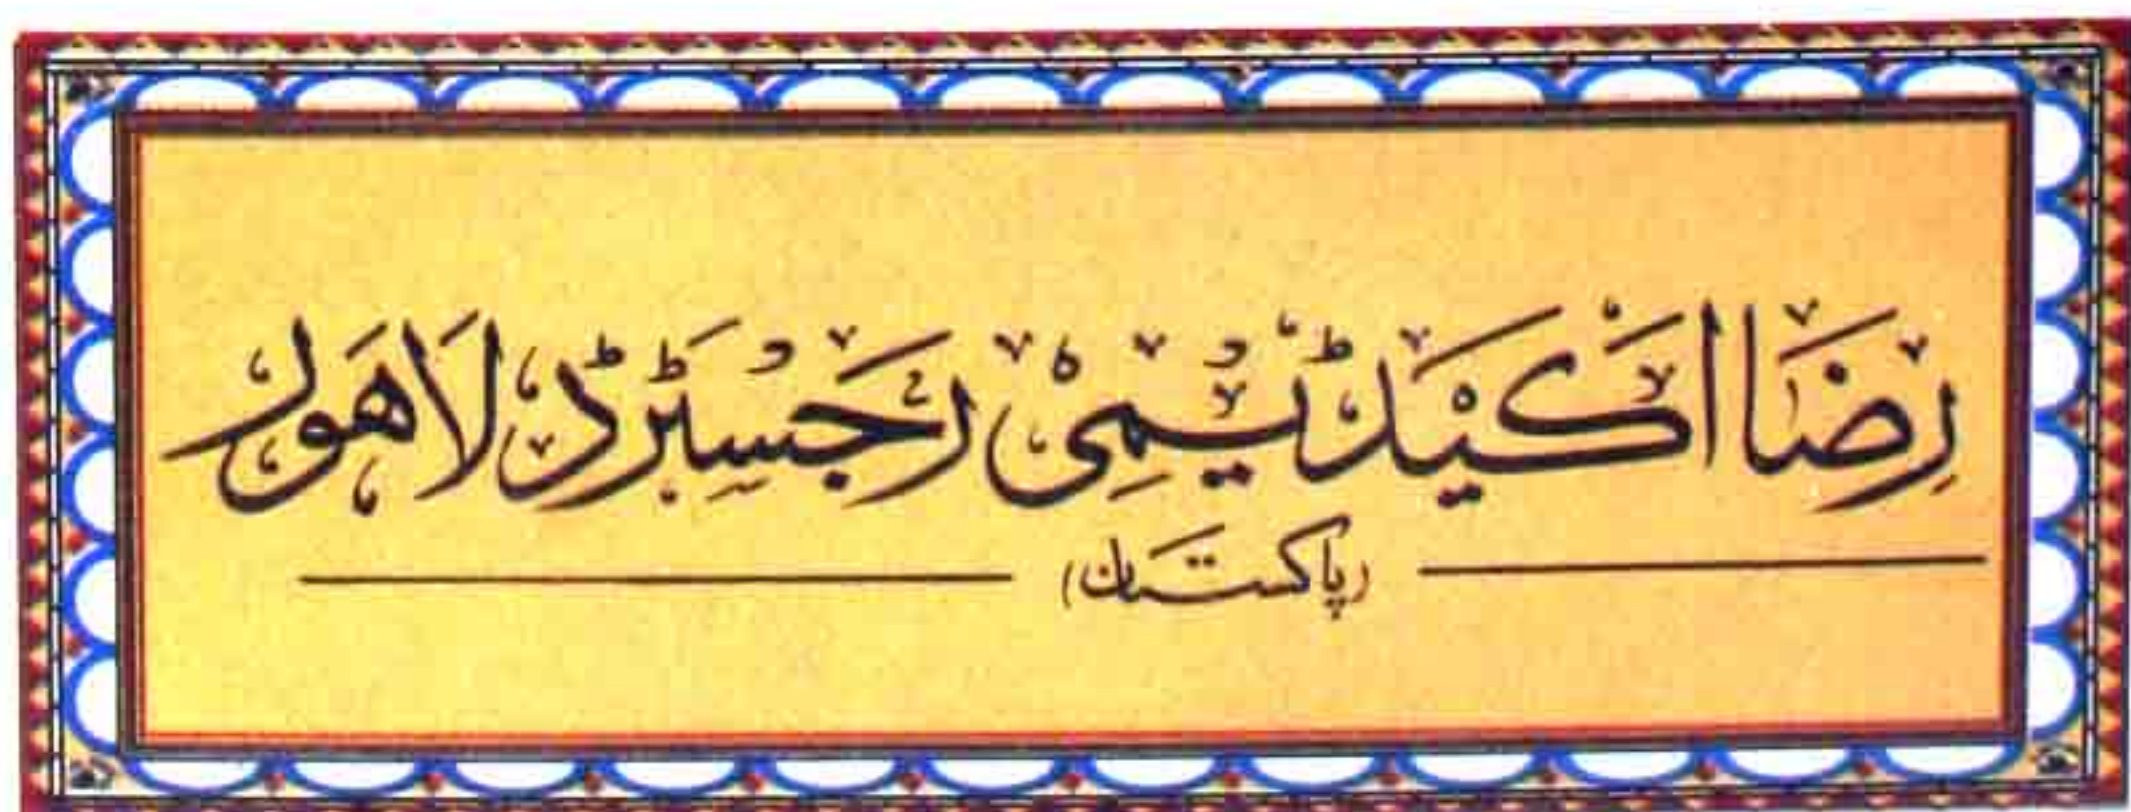 رضا اکیڈیمی رجسٹرڈ لاھور
(پاکستان)